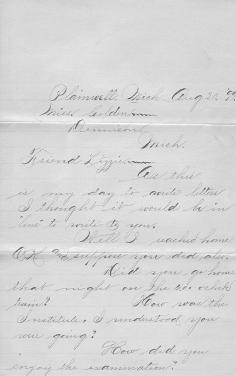 Plainwell, Mich Aug 21,
Miss Golden
Dennison,
Mich.
Friend Lizzie
As this
is my day to write letters
I thought it would be in
"line" to write to you.
Well I reached home
O.K. and suppose you did also.
Did you go home
that night on the o'clock
train? How was the
Institute. I understood you
were going?
How did you
"enjoy the examination."